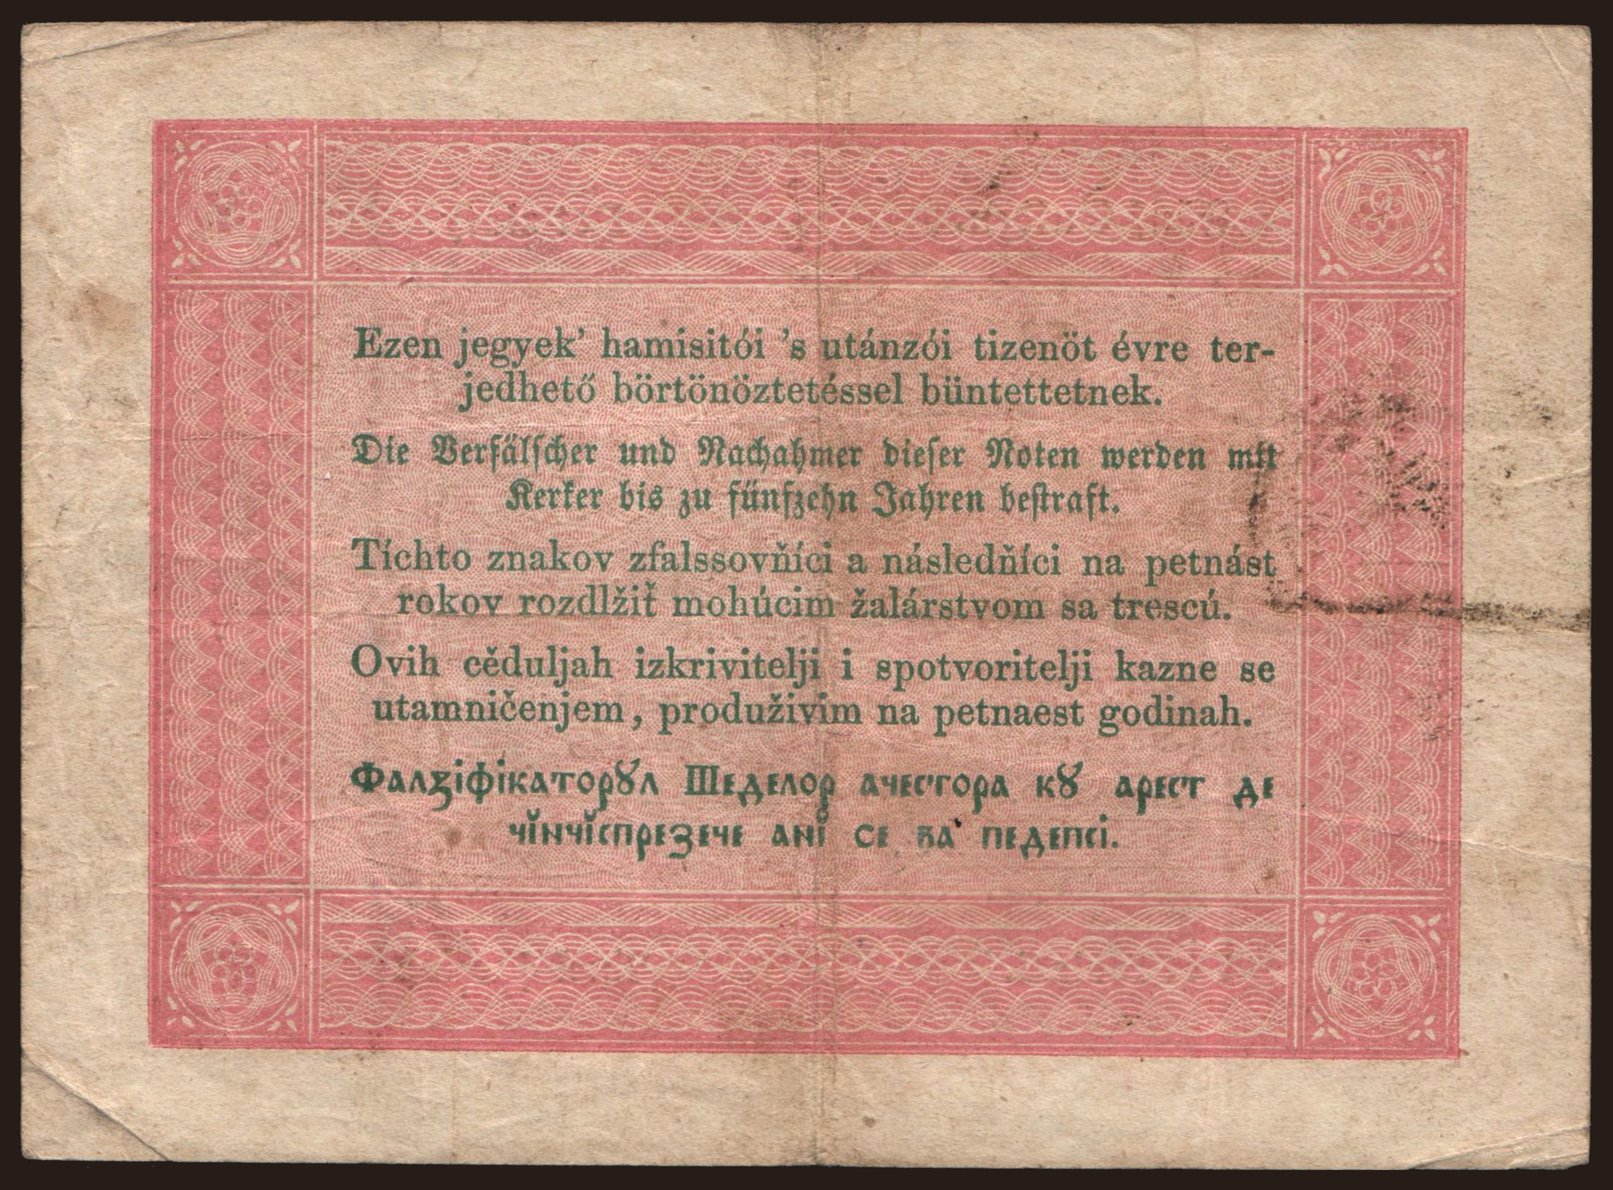 Ezen jegyek’ hamisitói ’s utánzói tizenöt évre ter-
jedhető börtönöztetéssel büntettetnek.
Die Verfälscher und Nachahmer dieser Noten werden mit
Kerker bis zu fünfzehn Jahren bestraft.
Tíchto znakov zfalssovňíci a následňíci na petnást
rokov rozdlžiť mohúcim žalárstvom sa trescú.
Ovih cěduljah izkrivitelji i spotvoritelji kazne se
utamničenjem, produživim na petnaest godinah.
Фалꙁіфікаторꙋл Шеделор ачестора кꙋ арест де
чĭнчĭспрезече анĭ се ва педепсі.